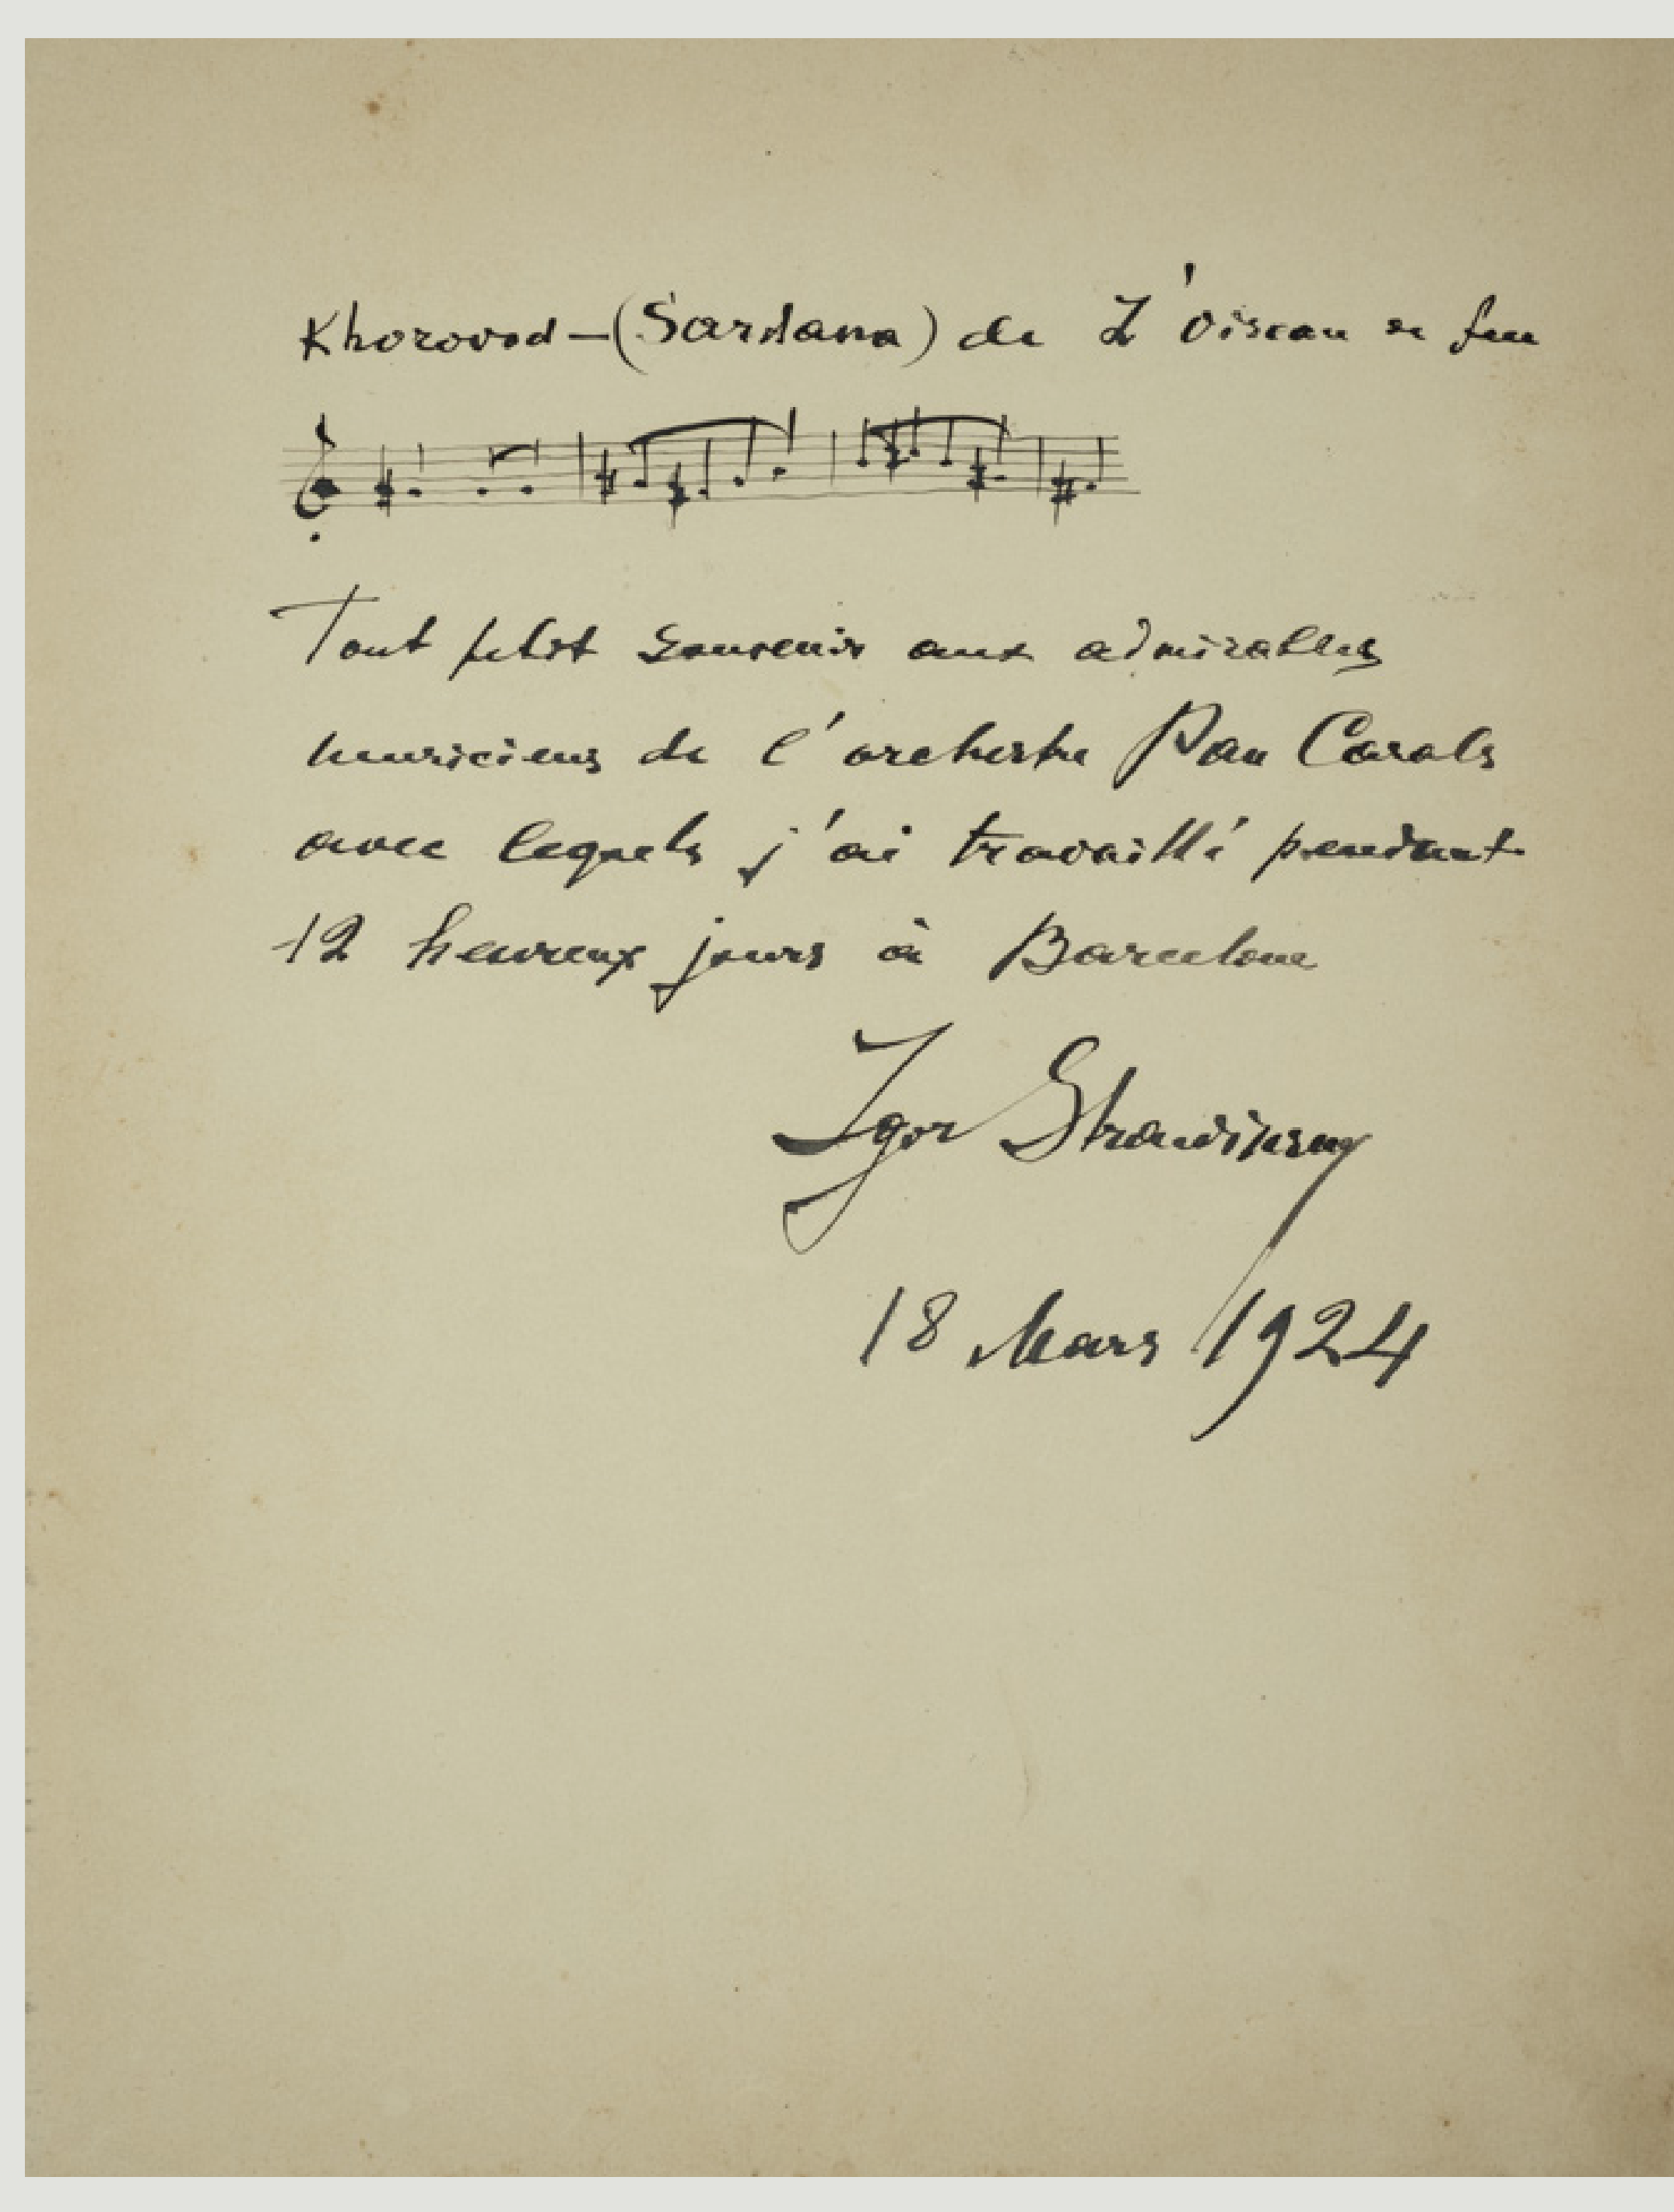 Khorovod – (Sardana) de L'oiseau de feu
Tout petit souvenir aux admirables
musiciens de l'orchestre Pau Casals
avec lequels j'ai travaillé pendant
12 heureux jours à Barcelone
Igor Strawinsky
18 Mars 1924